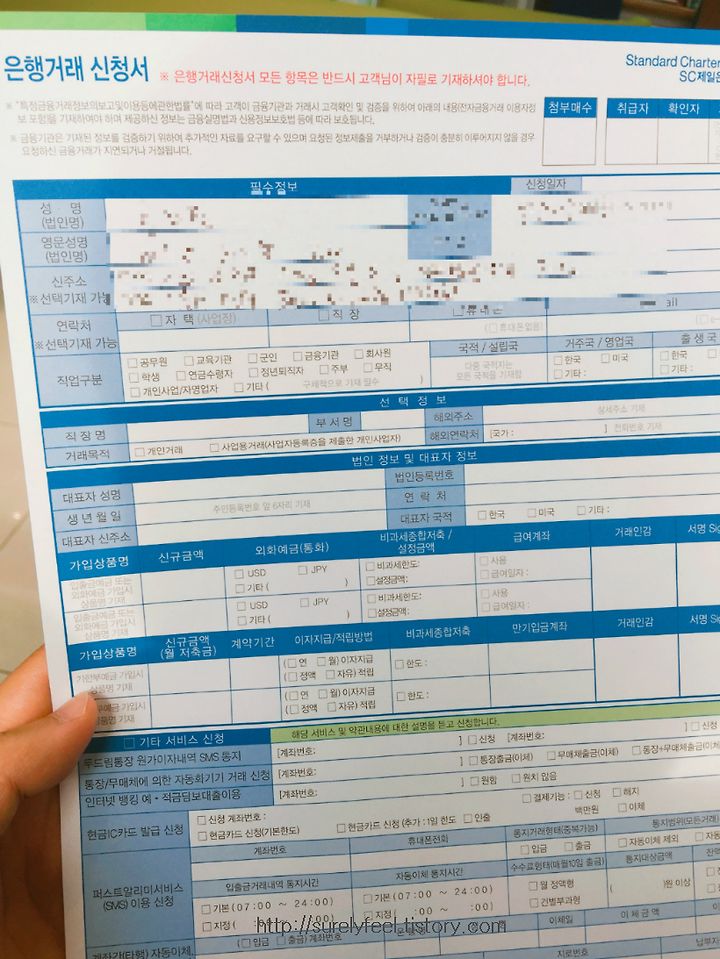 은행거래 신청서 ※ 은행거래신청서 모든 항목은 반드시 고객님이 자필로 기재하셔야 합니다.
Standard Charter
SC제일은
※ "특정금융거래정보의보고및이용등에관한법률"에 따라 고객이 금융기관과 거래시 고객확인 및 검증을 위하여 아래의 내용(전자금융거래 이용자정
보 포함)을 기재하여야 하며 제공하신 정보는 금융실명법과 신용정보보호법 등에 따라 보호됩니다.
※ 금융기관은 기재된 정보를 검증하기 위하여 추가적인 자료를 요구할 수 있으며 요청된 정보제출을 거부하거나 검증이 충분히 이루어지지 않을 경우
요청하신 금융거래가 지연되거나 거절됩니다.
첨부매수 취급자 확인자
필수정보 신청일자
성 명
(법인명)
영문성명
(법인명)
신주소
※선택기재 가능
연락처
※선택기재 가능
□ 자 택 (사업장) □ 직 장 □ 휴대폰 ail
(□ 휴대폰없음)
직업구분
□ 공무원 □ 교육기관 □ 군인 □ 금융기관 □ 회사원
□ 학생 □ 연금수령자 □ 정년퇴직자 □ 주부 □ 무직
□ 개인사업/자영업자 □ 기타 ( 구체적으로 기재 필수 )
국적 / 설립국 거주국 / 영업국 출 생 국
다중 국적자는
모든 국적을 기재함
□ 한국 □ 미국 □ 한국
□ 기타 : □ 기타 :
선 택 정 보
직 장 명 부 서 명 해외주소 상세주소 기재
거래목적 □ 개인거래 □ 사업용거래(사업자등록증을 제출한 개인사업자) 해외연락처 [국가 : ] 전화번호 기재
법인 정보 및 대표자 정보
대표자 성명 법인등록번호
생 년 월 일 주민등록번호 앞 6자리 기재 연 락 처
대표자 신주소 대표자 국적 □ 한국 □ 미국 □ 기타 :
가입상품명 신규금액 외화예금(통화) 비과세종합저축 /
설정금액 급여계좌 거래인감 서명 Sig
입출금예금 또는
외화예금 가입시
상품명 기재
□ USD □ JPY
□ 기타 ( )
□ 비과세한도:
□ 설정금액:
□ 사용
□ 급여일자 :
입출금예금 또는
외화예금 가입시
상품명 기재
□ USD □ JPY
□ 기타 ( )
□ 비과세한도:
□ 설정금액:
□ 사용
□ 급여일자 :
가입상품명 신규금액
(월 저축금) 계약기간 이자지급/적립방법 비과세종합저축 만기입금계좌 거래인감 서명 Sig
거치식예금 가입시
상품명 기재
(□ 연 □ 월) 이자지급
(□ 정액 □ 자유) 적립
□ 한도 :
예금 가입시
상품명 기재
(□ 연 □ 월) 이자지급
(□ 정액 □ 자유) 적립
□ 한도 :
□ 기타 서비스 신청 해당 서비스 및 약관내용에 대한 설명을 듣고 신청합니다.
두드림통장 원가이자내역 SMS 통지 [계좌번호: ] □ 신청 [계좌번호: ] □ 신청
통장/무매체에 의한 자동화기기 거래 신청 [계좌번호: ] □ 통장출금(이체) □ 무매체출금(이체) □ 통장+무매체출금(이체)
인터넷 뱅킹 예·적금담보대출이용 [계좌번호: ] □ 원함 □ 원치 않음
현금IC카드 발급 신청
□ 신청 계좌번호 : □ 결제가능 : □ 신청 □ 해지
□ 현금카드 신청(기본한도) □ 현금카드 신청 (추가 : 1일 한도 □ 인출 백만원 □ 이체
퍼스트알리미서비스
(SMS) 이용 신청
계좌번호 휴대폰전화 통지거래형태(중복가능) 통지범위(모든거래)
□ 입금 □ 출금 □ 자동이체 제외
입출금거래내역 통지시간 자동이체 통지시간 수수료형태(매월10일 출금) 통지대상금액
□ 기본 (07:00 ~ 24:00) □ 기본 (07:00 ~ 24:00) □ 월 정액형 ( )원 이상
□ 지정 ( :00) □ 지정 ( :00 ~ :00) □ 건별부과형
계좌간(타행) 자동이체
(□ 입금 □ 출금) 계좌번호 은 행 명 이체일 이 체 금 액
지로번호 납부자
http://surelyfeel.tistory.com